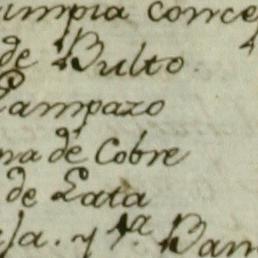 limpia conce
de Bulto
Lampazo
na de Cobre
de Lata
y 1ª Ban